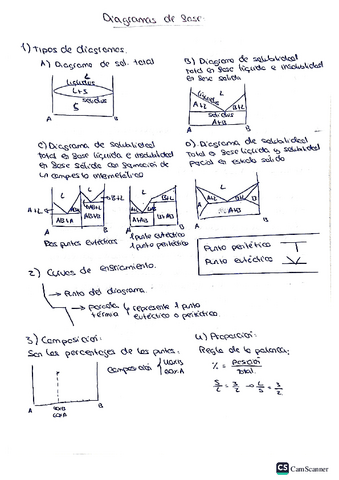 Diagramas de fase.
1) Tipos de diagramas.
A) Diagrama de sol. total
L
liquidus
L+S
solidus
S
A B
B) Diagrama de solubilidad
total en fase líquida e insolubilidad
en fase sólida
L
liquidus
A+L
B+L
solidus
A+B
A B
C) Diagrama de solubilidad
total en fase líquida e insolubilidad
en fase sólida con formación de
un compuesto intermetálico
L
A+L
B+L
L
A B
A B
Dos puntos eutécticos
1 punto eutéctico
1 punto peritéctico
D) Diagrama de solubilidad
Total en fase líquida y solubilidad
parcial en estado sólido
L
A+B
A B
Punto peritéctico
Punto eutéctico
2) Curvas de enfriamiento.
Punto del diagrama.
parada
térmica
represente 1 punto
eutéctico o peritéctico.
3) Composición:
Son los porcentajes de los puntos.
composición
40%B
60%A
A 40%B B
60%A
4) Proporción:
Regla de la palanca;
% = Porción
total.
S/L = 3/2 → L/S = 3/2
CS CamScanner